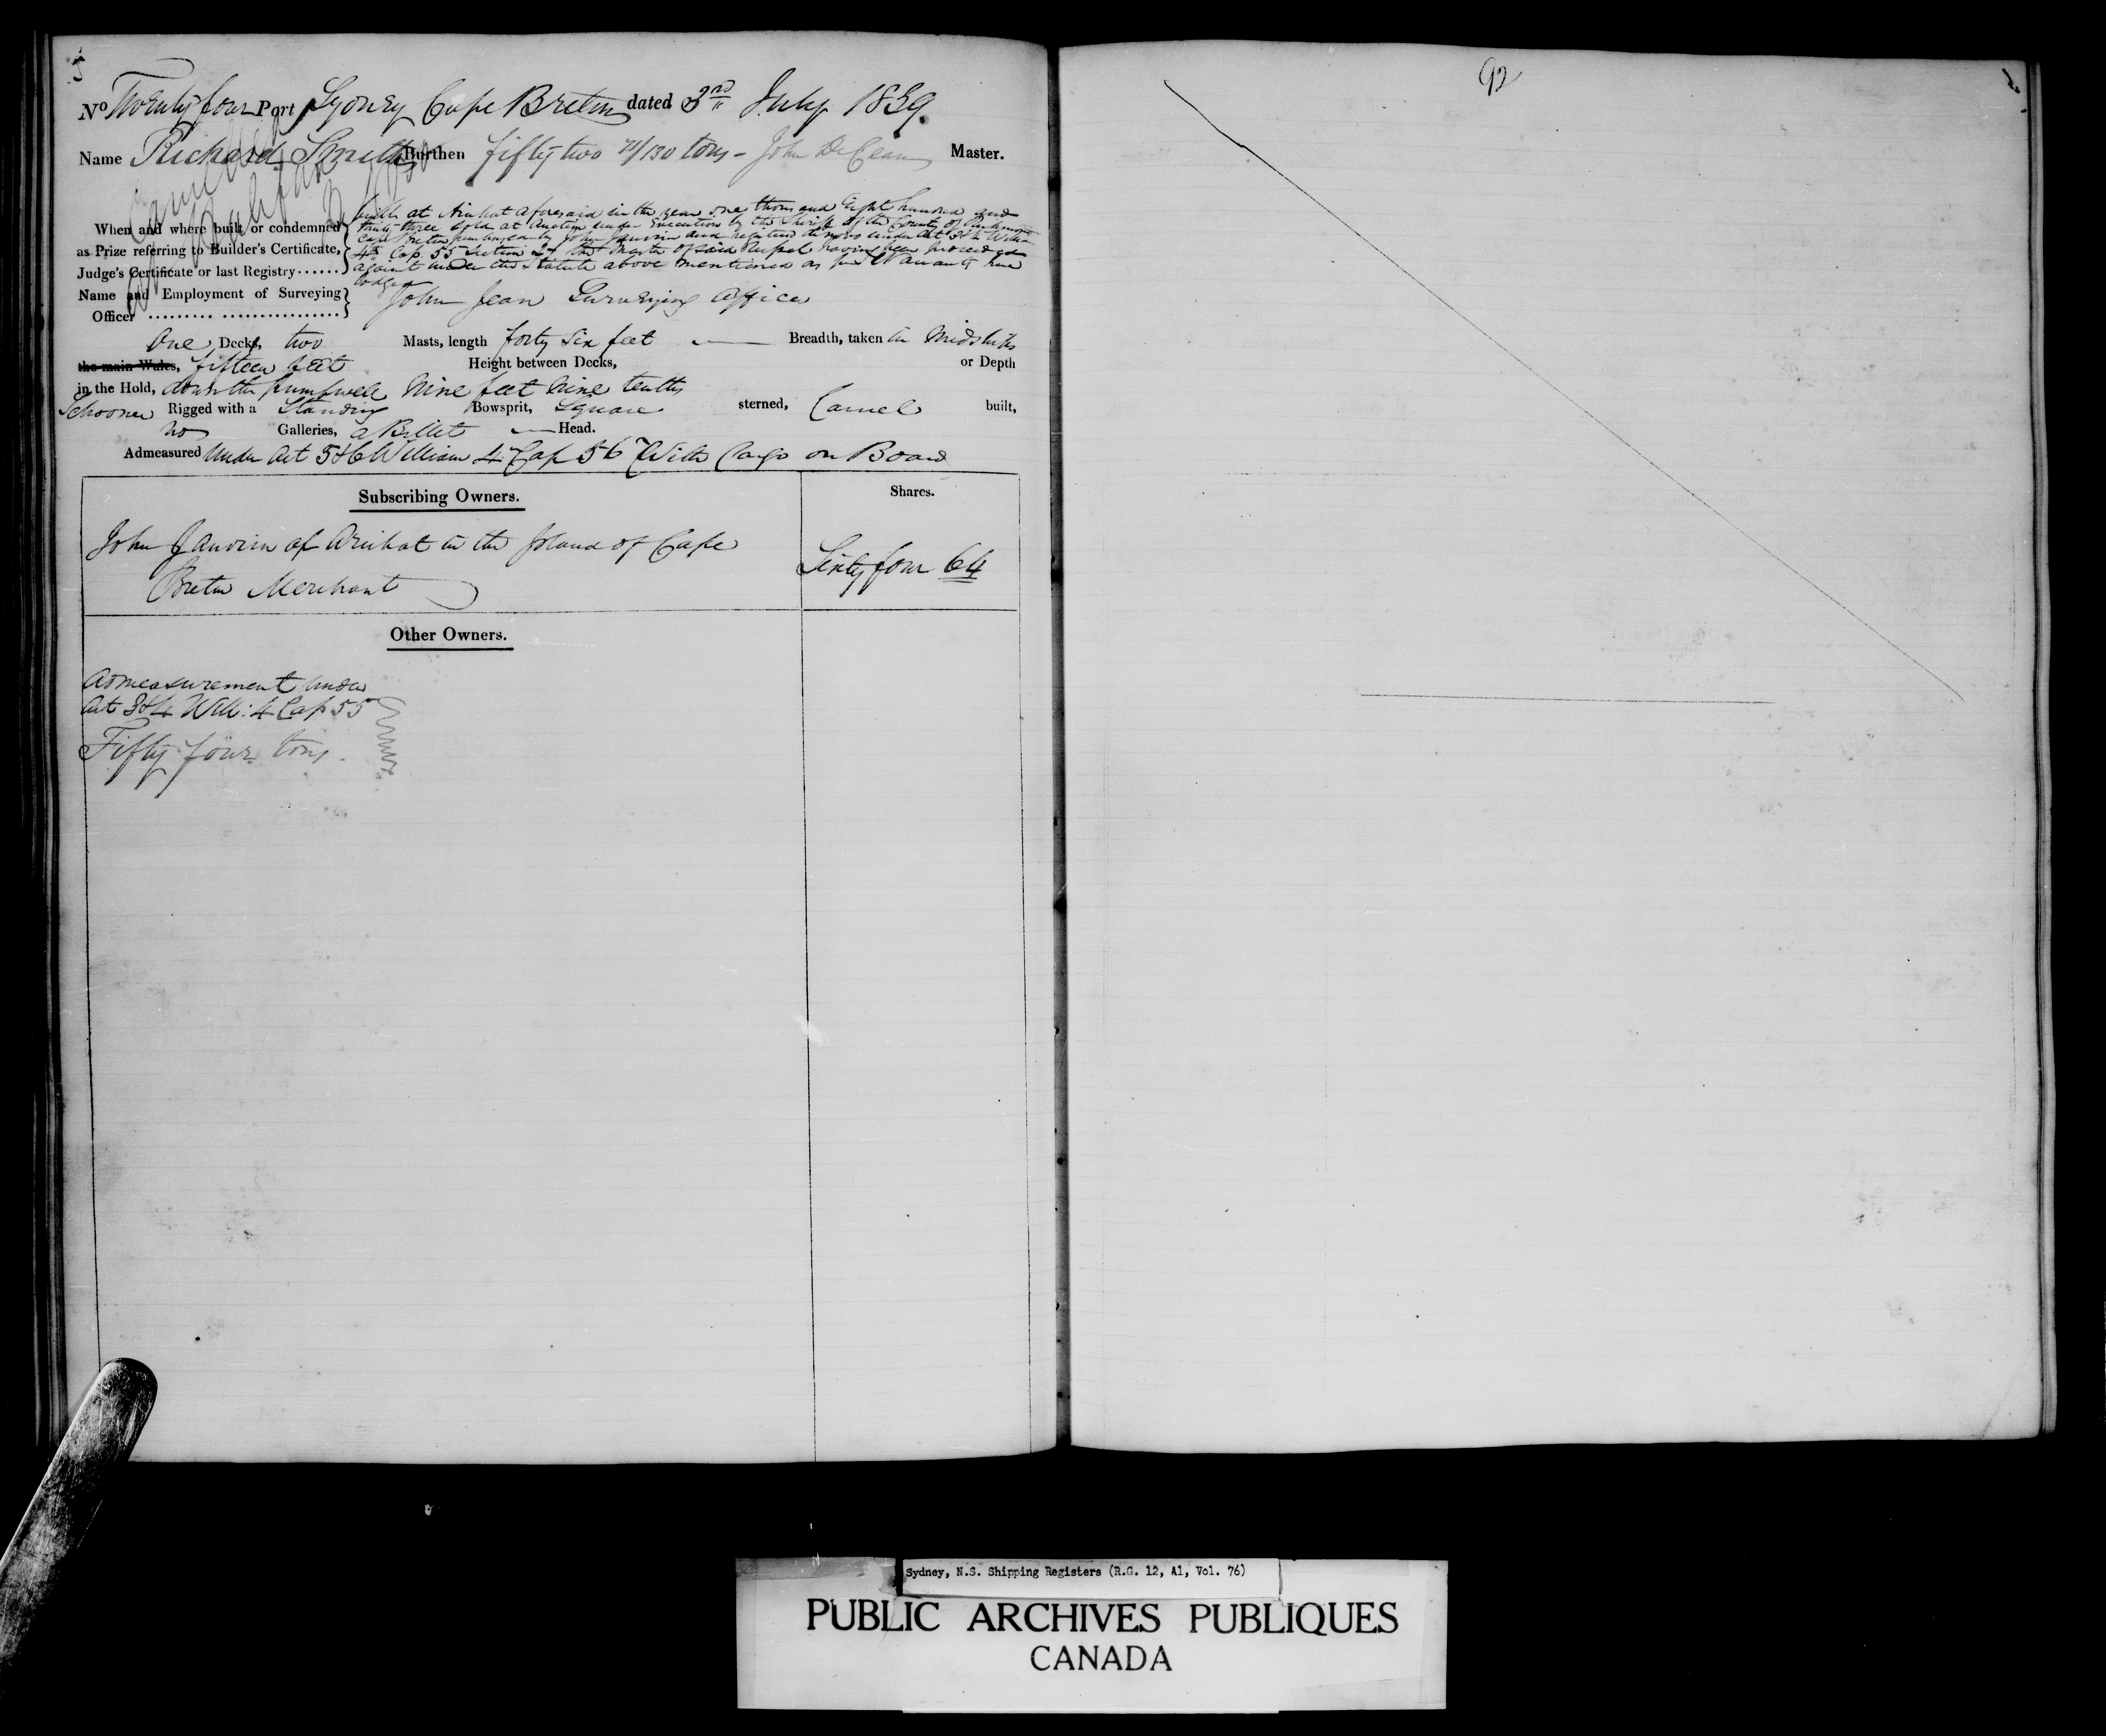 No Twenty four Port Sydney Cape Breton dated 3rd July 1839.
Name Richard Smith Burthen fifty two 71/130 tons - John DeCean Master.
Cancelled
Halifax
When and where built or condemned
as Prize referring to Builder's Certificate,
Judge's Certificate or last Registry......
built at Arichat aforesaid in the year one thousand Eight hundred and
thirty three sold at Auction under Execution by the Sheriff of the County of Richmond
Cape Breton purchased by John Janvrin and registered de novo under Act 3 & 4 Willm
4th Cap. 55 Section the Master of said Vessel having been proceeded
against under the Statute above mentioned as Warrants here
lodged
Name and Employment of Surveying
Officer
John Jean Surveying Officer
One Deck, two Masts, length forty six feet Breadth, taken in Midships
the main Wales, fifteen feet Height between Decks, or Depth
in the Hold, down the pumpwell Nine feet nine tenths
Schooner Rigged with a Standing Bowsprit, Square sterned, Carvel built,
no Galleries, a Billet Head.
Admeasured Under Act 5&6 William 4 Cap 56 With Cargo on Board
Subscribing Owners.
Shares.
John Janvrin of Arichat in the Island of Cape
Breton Merchant
Sixty four 64
Other Owners.
Admeasurement under
Act 3&4 Will: 4 Cap 55
Fifty four tons.
92
Sydney, N.S. Shipping Registers (R.G. 12, A1, Vol. 76)
PUBLIC ARCHIVES PUBLIQUES
CANADA